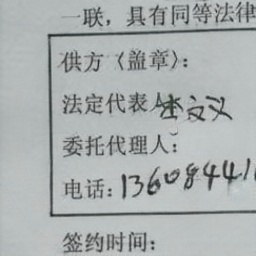 一联，具有同等法律
供方（盖章）：
法定代表人
委托代理人：
电话：13608441
签约时间：